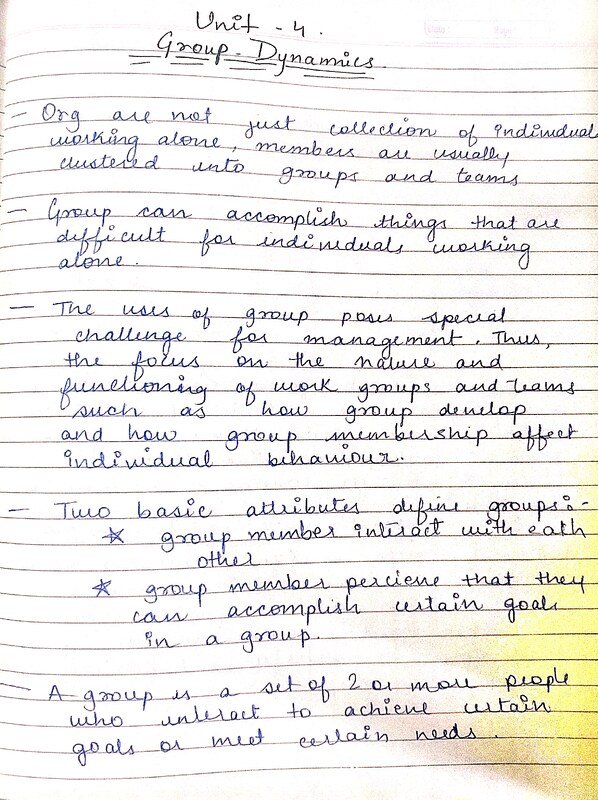 Unit - 4.
Group - Dynamics.
- Org are not just collection of individual
working alone, members are usually
clustered into groups and teams
- Group can accomplish things that are
difficult for individuals working
alone.
- The uses of group poses special
challenge for management. Thus,
the focus on the nature and
functioning of work groups and teams
such as how group develop
and how group membership affect
individual behaviour.
- Two basic attributes define groups:-
☆ group member interact with eath
other
☆ group member percieve that they
can accomplish certain goals
in a group.
- A group is a set of 2 or more people
who interact to achieve certain
goals or meet certain needs.